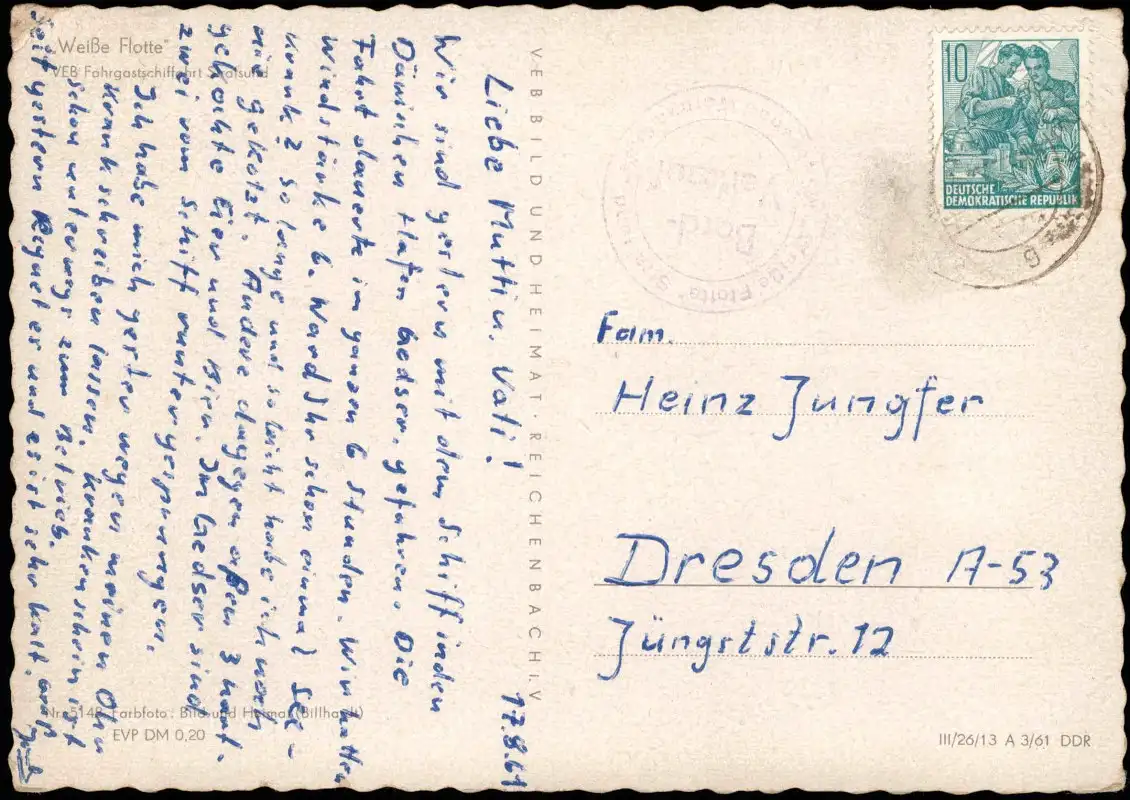 "Weiße Flotte"
VEB Fahrgastschiffahrt Stralsund
17.8.61
Liebe Mutti u. Vati!
Wir sind gestern mit dem Schiff in den
Dänischen Hafen Gedser, gefahren. Die
Fahrt dauerte im ganzen 6 Stunden. Wir hatten
Windstärke 6. Ward Ihr schon einmal See-
krank? So lange und so leicht habe ich noch
nie gekotzt. Andere dagegen aßen 3 hart-
gekochte Eier und Bier. In Gedser sind
zwei vom Schiff runtergesprungen.
Ich habe mich gestern wegen meinen Ohr
krank schreiben lassen. Krankenschein ist
schon unterwegs zum Betrieb.
Seit gestern Regnet er und es ist sehr kalt.
VEB BILD UND HEIMAT · REICHENBACH I. V
Nr. 5142 Farbfoto: Bild und Heimat (Billhardt)
EVP DM 0,20
10
DEUTSCHE
DEMOKRATISCHE REPUBLIK
Bord-
Fam.
Heinz Jungfer
Dresden A-53
Jüngststr. 12
III/26/13 A 3/61 DDR